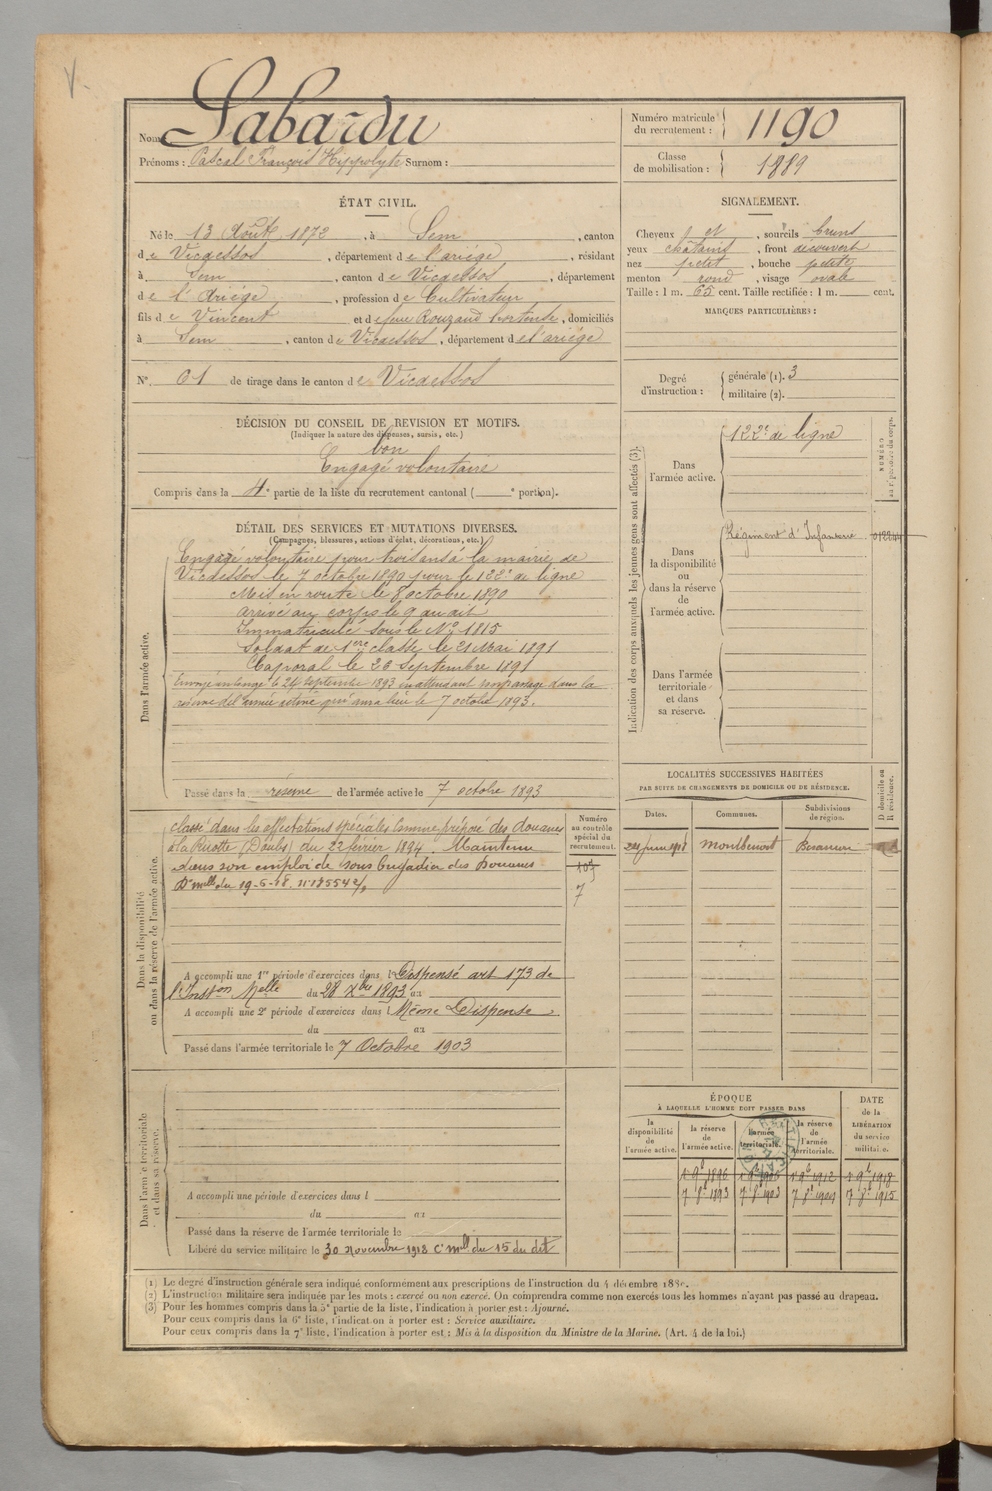 V.
Nom : Labardu
Prénoms : Pascal François Hippolyte Surnom :
Numéro matricule du recrutement : 1190
Classe de mobilisation : 1889
ÉTAT CIVIL.
Né le 13 Août 1872, à Sem, canton
de Vicdessos, département de l'ariége, résidant
à Sem, canton de Vicdessos, département
de l'Ariége, profession de Cultivateur
fils de Vincent et de feue Rouzaud hortense, domiciliés
à Sem, canton de Vicdessos, département de l'ariége
N° 61 de tirage dans le canton de Vicdessos
SIGNALEMENT.
Cheveux et, sourcils bruns
yeux chatains, front découvert
nez petit, bouche petite
menton rond, visage ovale
Taille : 1 m. 65 cent. Taille rectifiée : 1 m. cent.
MARQUES PARTICULIÈRES :
Degré d'instruction : générale (1). 3
militaire (2).
DÉCISION DU CONSEIL DE REVISION ET MOTIFS.
(Indiquer la nature des dispenses, sursis, etc.)
bon
Engagé volontaire
Compris dans la 4e partie de la liste du recrutement cantonal ( e portion).
DÉTAIL DES SERVICES ET MUTATIONS DIVERSES.
(Campagnes, blessures, actions d'éclat, décorations, etc.)
Dans l'armée active.
Engagé volontaire pour trois ans à la mairie de
Vicdessos le 7 octobre 1890 pour le 122e de ligne
Mis en route le 8 octobre 1890
arrivé au corps le 9 audit
Immatriculé sous le N° 1815
Soldat de 1ere classe le 21 Mai 1891
Caporal le 26 Septembre 1891
Envoyé en congé le 24 septembre 1893 en attendant son passage dans la
réserve de l'armée active qui aura lieu le 7 octobre 1893.
Passé dans la réserve de l'armée active le 7 octobre 1893
Indication des corps auxquels les jeunes gens sont affectés (3).
NUMÉRO au répertoire du corps.
Dans l'armée active.
122e de ligne
Dans la disponibilité ou dans la réserve de l'armée active.
Régiment d'Infanterie
Dans l'armée territoriale et dans sa réserve.
Dans la disponibilité ou dans la réserve de l'armée active.
Numéro au contrôle spécial du recrutement.
classé dans les affectations spéciales comme préposé des douanes
à la (Doubs) du 22 février 1894. Maintenu
dans son emploi de sous brigadier des Douanes
Don melle du 19-6-18. n° 18554 2/9
7
A accompli une 1re période d'exercices dans l Dispensé art 173 de
l'Inston Melle du 28 Xbre 1893 au
A accompli une 2e période d'exercices dans l Même Dispense
du au
Passé dans l'armée territoriale le 7 Octobre 1903
LOCALITÉS SUCCESSIVES HABITÉES
PAR SUITE DE CHANGEMENTS DE DOMICILE OU DE RÉSIDENCE.
Dates. Communes. Subdivisions de région. D domicile ou R résidence.
Montbenoit Besançon
Dans l'armée territoriale et dans sa réserve.
A accompli une période d'exercices dans l
du au
Passé dans la réserve de l'armée territoriale le
Libéré du service militaire le 30 novembre 1918 Ce mell du 15 du dit
ÉPOQUE
À LAQUELLE L'HOMME DOIT PASSER DANS
la disponibilité de l'armée active. la réserve de l'armée active. l'armée territoriale. la réserve de l'armée territoriale. DATE de la LIBÉRATION du service militaire.
1 9b 1896 1 9b 1906 1 9b 1912 1 9b 1918
7 8b 1893 7 8b 1903 7 8b 1909 7 8b 1915
(1) Le degré d'instruction générale sera indiqué conformément aux prescriptions de l'instruction du 4 décembre 188.
(2) L'instruction militaire sera indiquée par les mots : exercé ou non exercé. On comprendra comme non exercés tous les hommes n'ayant pas passé au drapeau.
(3) Pour les hommes compris dans la 5e partie de la liste, l'indication à porter est : Ajourné.
Pour ceux compris dans la 6e liste, l'indication à porter est : Service auxiliaire.
Pour ceux compris dans la 7e liste, l'indication à porter est : Mis à la disposition du Ministre de la Marine. (Art. 4 de la loi.)